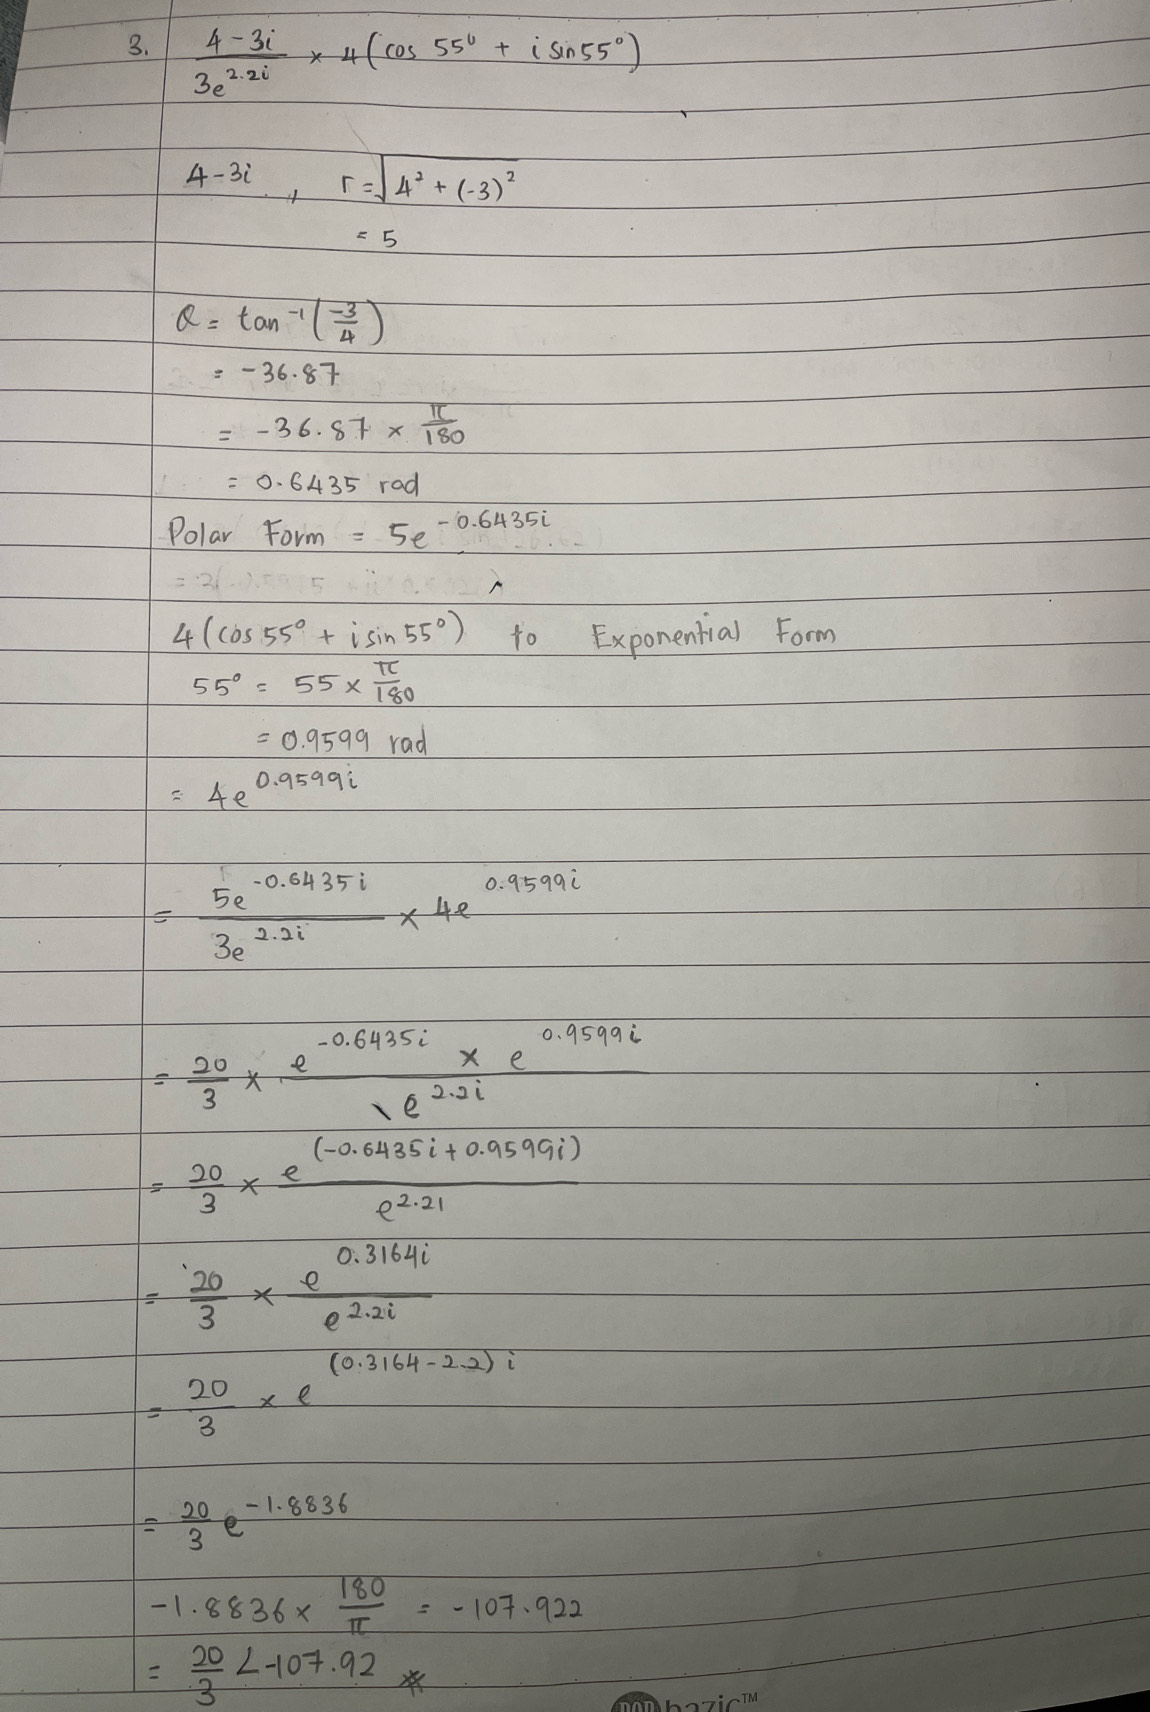 3. 4-3i / 3e^2.2i × 4(cos 55° + i sin 55°)
4-3i , r = √4² + (-3)²
= 5
θ = tan⁻¹(-3/4)
= -36.87
= -36.87 × π/180
= 0.6435 rad
Polar Form = 5e^-0.6435i
4(cos 55° + i sin 55°) to Exponential Form
55° = 55 × π/180
= 0.9599 rad
= 4e^0.9599i
= 5e^-0.6435i / 3e^2.2i × 4e^0.9599i
= 20/3 × e^-0.6435i × e^0.9599i / e^2.2i
= 20/3 × e^(-0.6435i + 0.9599i) / e^2.2i
= 20/3 × e^0.3164i / e^2.2i
= 20/3 × e^(0.3164 - 2.2)i
= 20/3 e^-1.8836
-1.8836 × 180/π = -107.922
= 20/3 ∠-107.92 *
bazic™